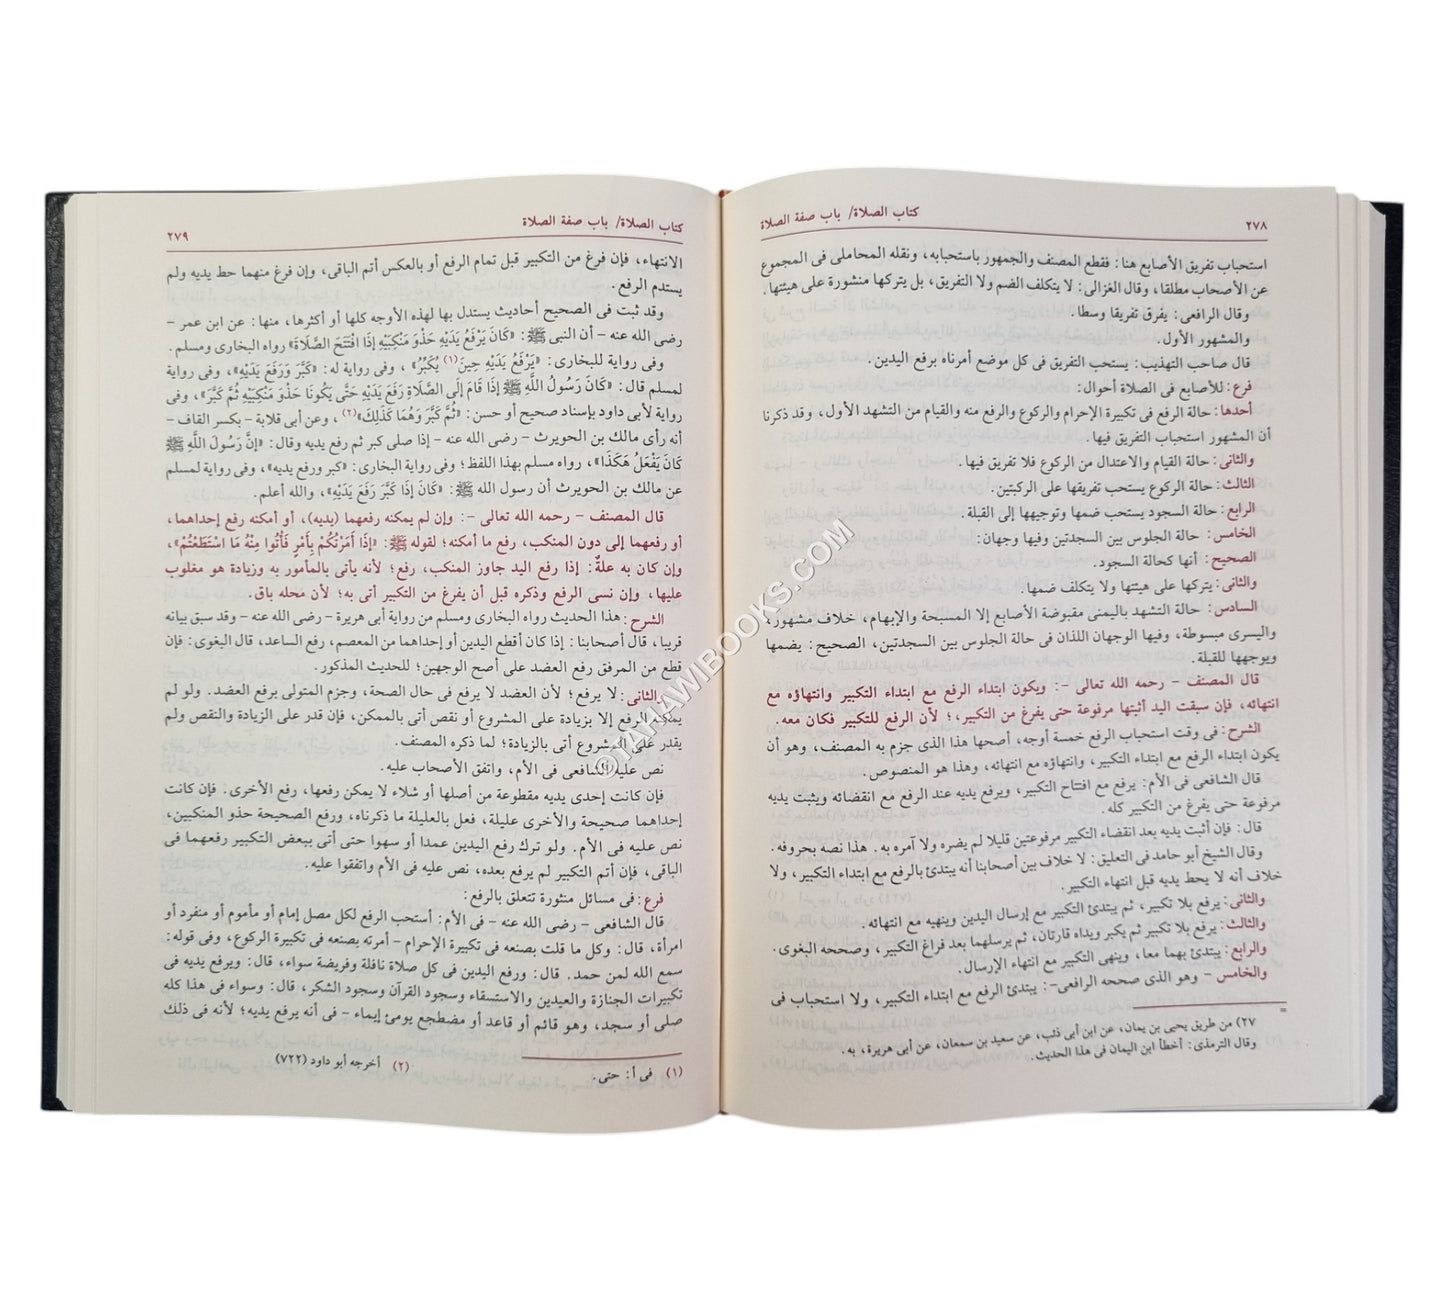 ٢٧٨
كتاب الصلاة/ باب صفة الصلاة
استحباب تفريق الأصابع هنا: فقطع المصنف والجمهور باستحبابه، ونقله المحاملى فى المجموع
عن الأصحاب مطلقا، وقال الغزالى: لا يتكلف الضم ولا التفريق، بل يتركها منشورة على هيئتها.
وقال الرافعى: يفرق تفريقا وسطا.
والمشهور الأول.
قال صاحب التهذيب: يستحب التفريق فى كل موضع أمرناه برفع اليدين.
فرع: للأصابع فى الصلاة أحوال:
أحدها: حالة الرفع فى تكبيرة الإحرام والركوع والرفع منه والقيام من التشهد الأول، وقد ذكرنا
أن المشهور استحباب التفريق فيها.
والثانى: حالة القيام والاعتدال من الركوع فلا تفريق فيها.
الثالث: حالة الركوع يستحب تفريقها على الركبتين.
الرابع: حالة السجود يستحب ضمها وتوجيهها إلى القبلة.
الخامس: حالة الجلوس بين السجدتين وفيها وجهان:
الصحيح: أنها كحالة السجود.
والثانى: يتركها على هيئتها ولا يتكلف ضمها.
السادس: حالة التشهد باليمنى مقبوضة الأصابع إلا المسبحة والإبهام، خلاف مشهور،
واليسرى مبسوطة، وفيها الوجهان اللذان فى حالة الجلوس بين السجدتين، الصحيح: يضمها
ويوجهها للقبلة.
قال المصنف – رحمه الله تعالى –: ويكون ابتداء الرفع مع ابتداء التكبير وانتهاؤه مع
انتهائه، فإن سبقت اليد أثبتها مرفوعة حتى يفرغ من التكبير،؛ لأن الرفع للتكبير فكان معه.
الشرح: فى وقت استحباب الرفع خمسة أوجه، أصحها هذا الذى جزم به المصنف، وهو أن
يكون ابتداء الرفع مع ابتداء التكبير، وانتهاؤه مع انتهائه، وهذا هو المنصوص.
قال الشافعى فى الأم: يرفع مع افتتاح التكبير، ويرفع يديه عند الرفع مع انقضائه ويثبت يديه
مرفوعة حتى يفرغ من التكبير كله.
قال: فإن أثبت يديه بعد انقضاء التكبير مرفوعتين قليلا لم يضره ولا آمره به. هذا نصه بحروفه.
وقال الشيخ أبو حامد فى التعليق: لا خلاف بين أصحابنا أنه يبتدئ بالرفع مع ابتداء التكبير، ولا
خلاف أنه لا يحط يديه قبل انتهاء التكبير.
والثانى: يرفع بلا تكبير، ثم يبتدئ التكبير مع إرسال اليدين وينهيه مع انتهائه.
والثالث: يرفع بلا تكبير ثم يكبر ويداه قارتان، ثم يرسلهما بعد فراغ التكبير، وصححه البغوى.
والرابع: يبتدئ بهما معا، وينهى التكبير مع انتهاء الإرسال.
والخامس – وهو الذى صححه الرافعى–: يبتدئ الرفع مع ابتداء التكبير، ولا استحباب فى
=
٢٧) من طريق يحيى بن يمان، عن ابن أبى ذئب، عن سعيد بن سمعان، عن أبى هريرة، به.
وقال الترمذى: أخطأ ابن اليمان فى هذا الحديث.
كتاب الصلاة/ باب صفة الصلاة
٢٧٩
الانتهاء، فإن فرغ من التكبير قبل تمام الرفع أو بالعكس أتم الباقى، وإن فرغ منهما حط يديه ولم
يستدم الرفع.
وقد ثبت فى الصحيح أحاديث يستدل بها لهذه الأوجه كلها أو أكثرها، منها: عن ابن عمر –
رضى الله عنه – أن النبى ﷺ: «كَانَ يَرْفَعُ يَدَيْهِ حَذْوَ مَنْكِبَيْهِ إِذَا افْتَتَحَ الصَّلَاةَ» رواه البخارى ومسلم.
وفى رواية للبخارى: «يَرْفَعُ يَدَيْهِ حِينَ(١) يُكَبِّرُ» ، وفى رواية له: «كَبَّرَ وَرَفَعَ يَدَيْهِ»، وفى رواية
لمسلم قال: «كَانَ رَسُولُ اللَّهِ ﷺ إِذَا قَامَ إِلَى الصَّلَاةِ رَفَعَ يَدَيْهِ حَتَّى يَكُونَا حَذْوَ مَنْكِبَيْهِ ثُمَّ كَبَّرَ»، وفى
رواية لأبى داود بإسناد صحيح أو حسن: «ثُمَّ كَبَّرَ وَهُمَا كَذَلِكَ»(٢)، وعن أبى قلابة – بكسر القاف –
أنه رأى مالك بن الحويرث – رضى الله عنه – إذا صلى كبر ثم رفع يديه وقال: «إِنَّ رَسُولَ اللَّهِ ﷺ
كَانَ يَفْعَلُ هَكَذَا»، رواه مسلم بهذا اللفظ؛ وفى رواية البخارى: «كبر ورفع يديه»، وفى رواية لمسلم
عن مالك بن الحويرث أن رسول الله ﷺ: «كَانَ إِذَا كَبَّرَ رَفَعَ يَدَيْهِ»، والله أعلم.
قال المصنف – رحمه الله تعالى –: وإن لم يمكنه رفعهما (يديه)، أو أمكنه رفع إحداهما،
أو رفعهما إلى دون المنكب، رفع ما أمكنه؛ لقوله ﷺ: «إِذَا أَمَرْتُكُمْ بِأَمْرٍ فَأْتُوا مِنْهُ مَا اسْتَطَعْتُمْ»،
وإن كان به علةٌ: إذا رفع اليد جاوز المنكب، رفع؛ لأنه يأتى بالمأمور به وزيادة هو مغلوب
عليها، وإن نسى الرفع وذكره قبل أن يفرغ من التكبير أتى به؛ لأن محله باق.
الشرح: هذا الحديث رواه البخارى ومسلم من رواية أبى هريرة – رضى الله عنه – وقد سبق بيانه
قريبا، قال أصحابنا: إذا كان أقطع اليدين أو إحداهما من المعصم، رفع الساعد، قال البغوى: فإن
قطع من المرفق رفع العضد على أصح الوجهين؛ للحديث المذكور.
والثانى: لا يرفع؛ لأن العضد لا يرفع فى حال الصحة، وجزم المتولى برفع العضد. ولو لم
يمكنه الرفع إلا بزيادة على المشروع أو نقص أتى بالممكن، فإن قدر على الزيادة والنقص ولم
يقدر على المشروع أتى بالزيادة؛ لما ذكره المصنف.
نص عليه الشافعى فى الأم، واتفق الأصحاب عليه.
فإن كانت إحدى يديه مقطوعة من أصلها أو شلاء لا يمكن رفعها، رفع الأخرى. فإن كانت
إحداهما صحيحة والأخرى عليلة، فعل بالعليلة ما ذكرناه، ورفع الصحيحة حذو المنكبين،
نص عليه فى الأم. ولو ترك رفع اليدين عمدا أو سهوا حتى أتى ببعض التكبير رفعهما فى
الباقى، فإن أتم التكبير لم يرفع بعده، نص عليه فى الأم واتفقوا عليه.
فرع: فى مسائل منثورة تتعلق بالرفع:
قال الشافعى – رضى الله عنه – فى الأم: أستحب الرفع لكل مصل إمام أو مأموم أو منفرد أو
امرأة، قال: وكل ما قلت بصنعه فى تكبيرة الإحرام – أمرته بصنعه فى تكبيرة الركوع، وفى قوله:
سمع الله لمن حمد. قال: ورفع اليدين فى كل صلاة نافلة وفريضة سواء، قال: ويرفع يديه فى
تكبيرات الجنازة والعيدين والاستسقاء وسجود القرآن وسجود الشكر، قال: وسواء فى هذا كله
صلى أو سجد، وهو قائم أو قاعد أو مضطجع يومئ إيماء – فى أنه يرفع يديه؛ لأنه فى ذلك
(١) فى أ: حتى. (٢) أخرجه أبو داود (٧٢٢)
©TAHAWIBOOKS.COM